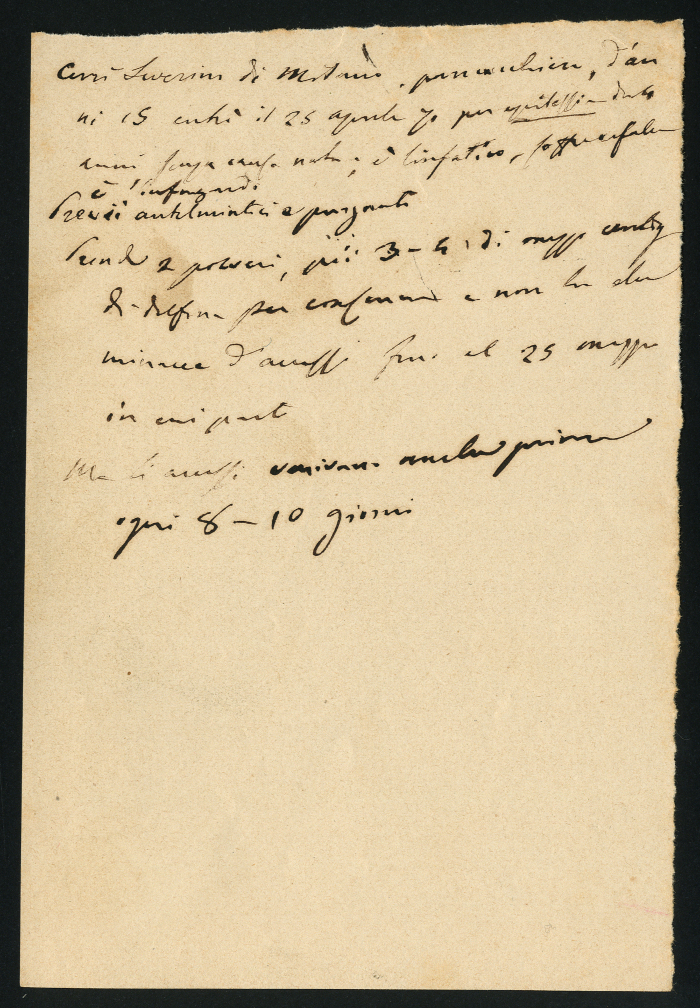 Cerri Severino di Milano, parrucchiere, d'an
ni 15 entrò il 25 aprile 70 per epilessia da
anni senza causa nota, è linfatico, soffre cefalea
è
Previi antelmintici e purganti
Prende 2 polveri, più 3-4 di maggio
di per e non ha che
minacce d'accessi fino al 25 maggio
in cui partì
Ma li accessi venivano anche prima
ogni 8-10 giorni